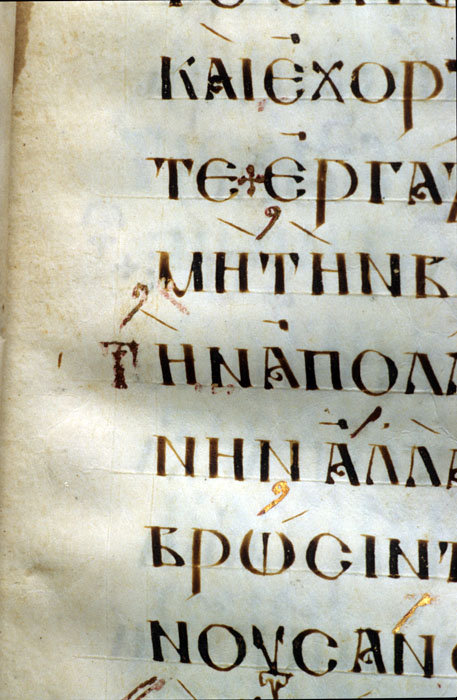 ΚΑΙΕΧΟΡΤ
ΤΕ⁘ΕΡΓΑΖ
ΜΗΤΗΝΒ
ΤΗΝΑΠΟΛΛ
ΝΗΝΑΛΛΑ
ΒΡΩΣΙΝΤ
ΝΟΥΣΑΝΟ